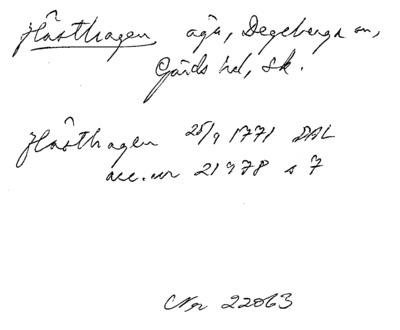 Hästhagen ägo, Degeberga sn,
Gärds hd, Sk.
Hästhagen 25/9 1771 DAL
acc.nr 21978 s 7
CNr 22063